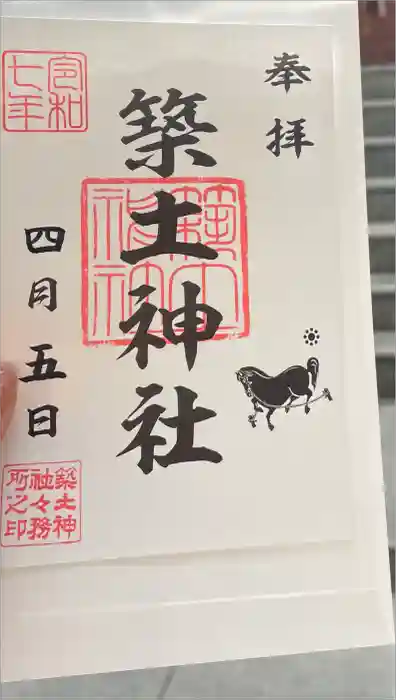 奉拝
築土神社
築土神社
令和七年
四月五日
築土神
社々務
所之印